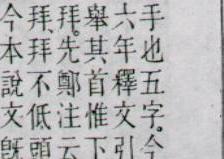 手也五字。今
六年釋文引
舉其首惟下
拜。先鄭注云
拜拜不低頭
今本說文既